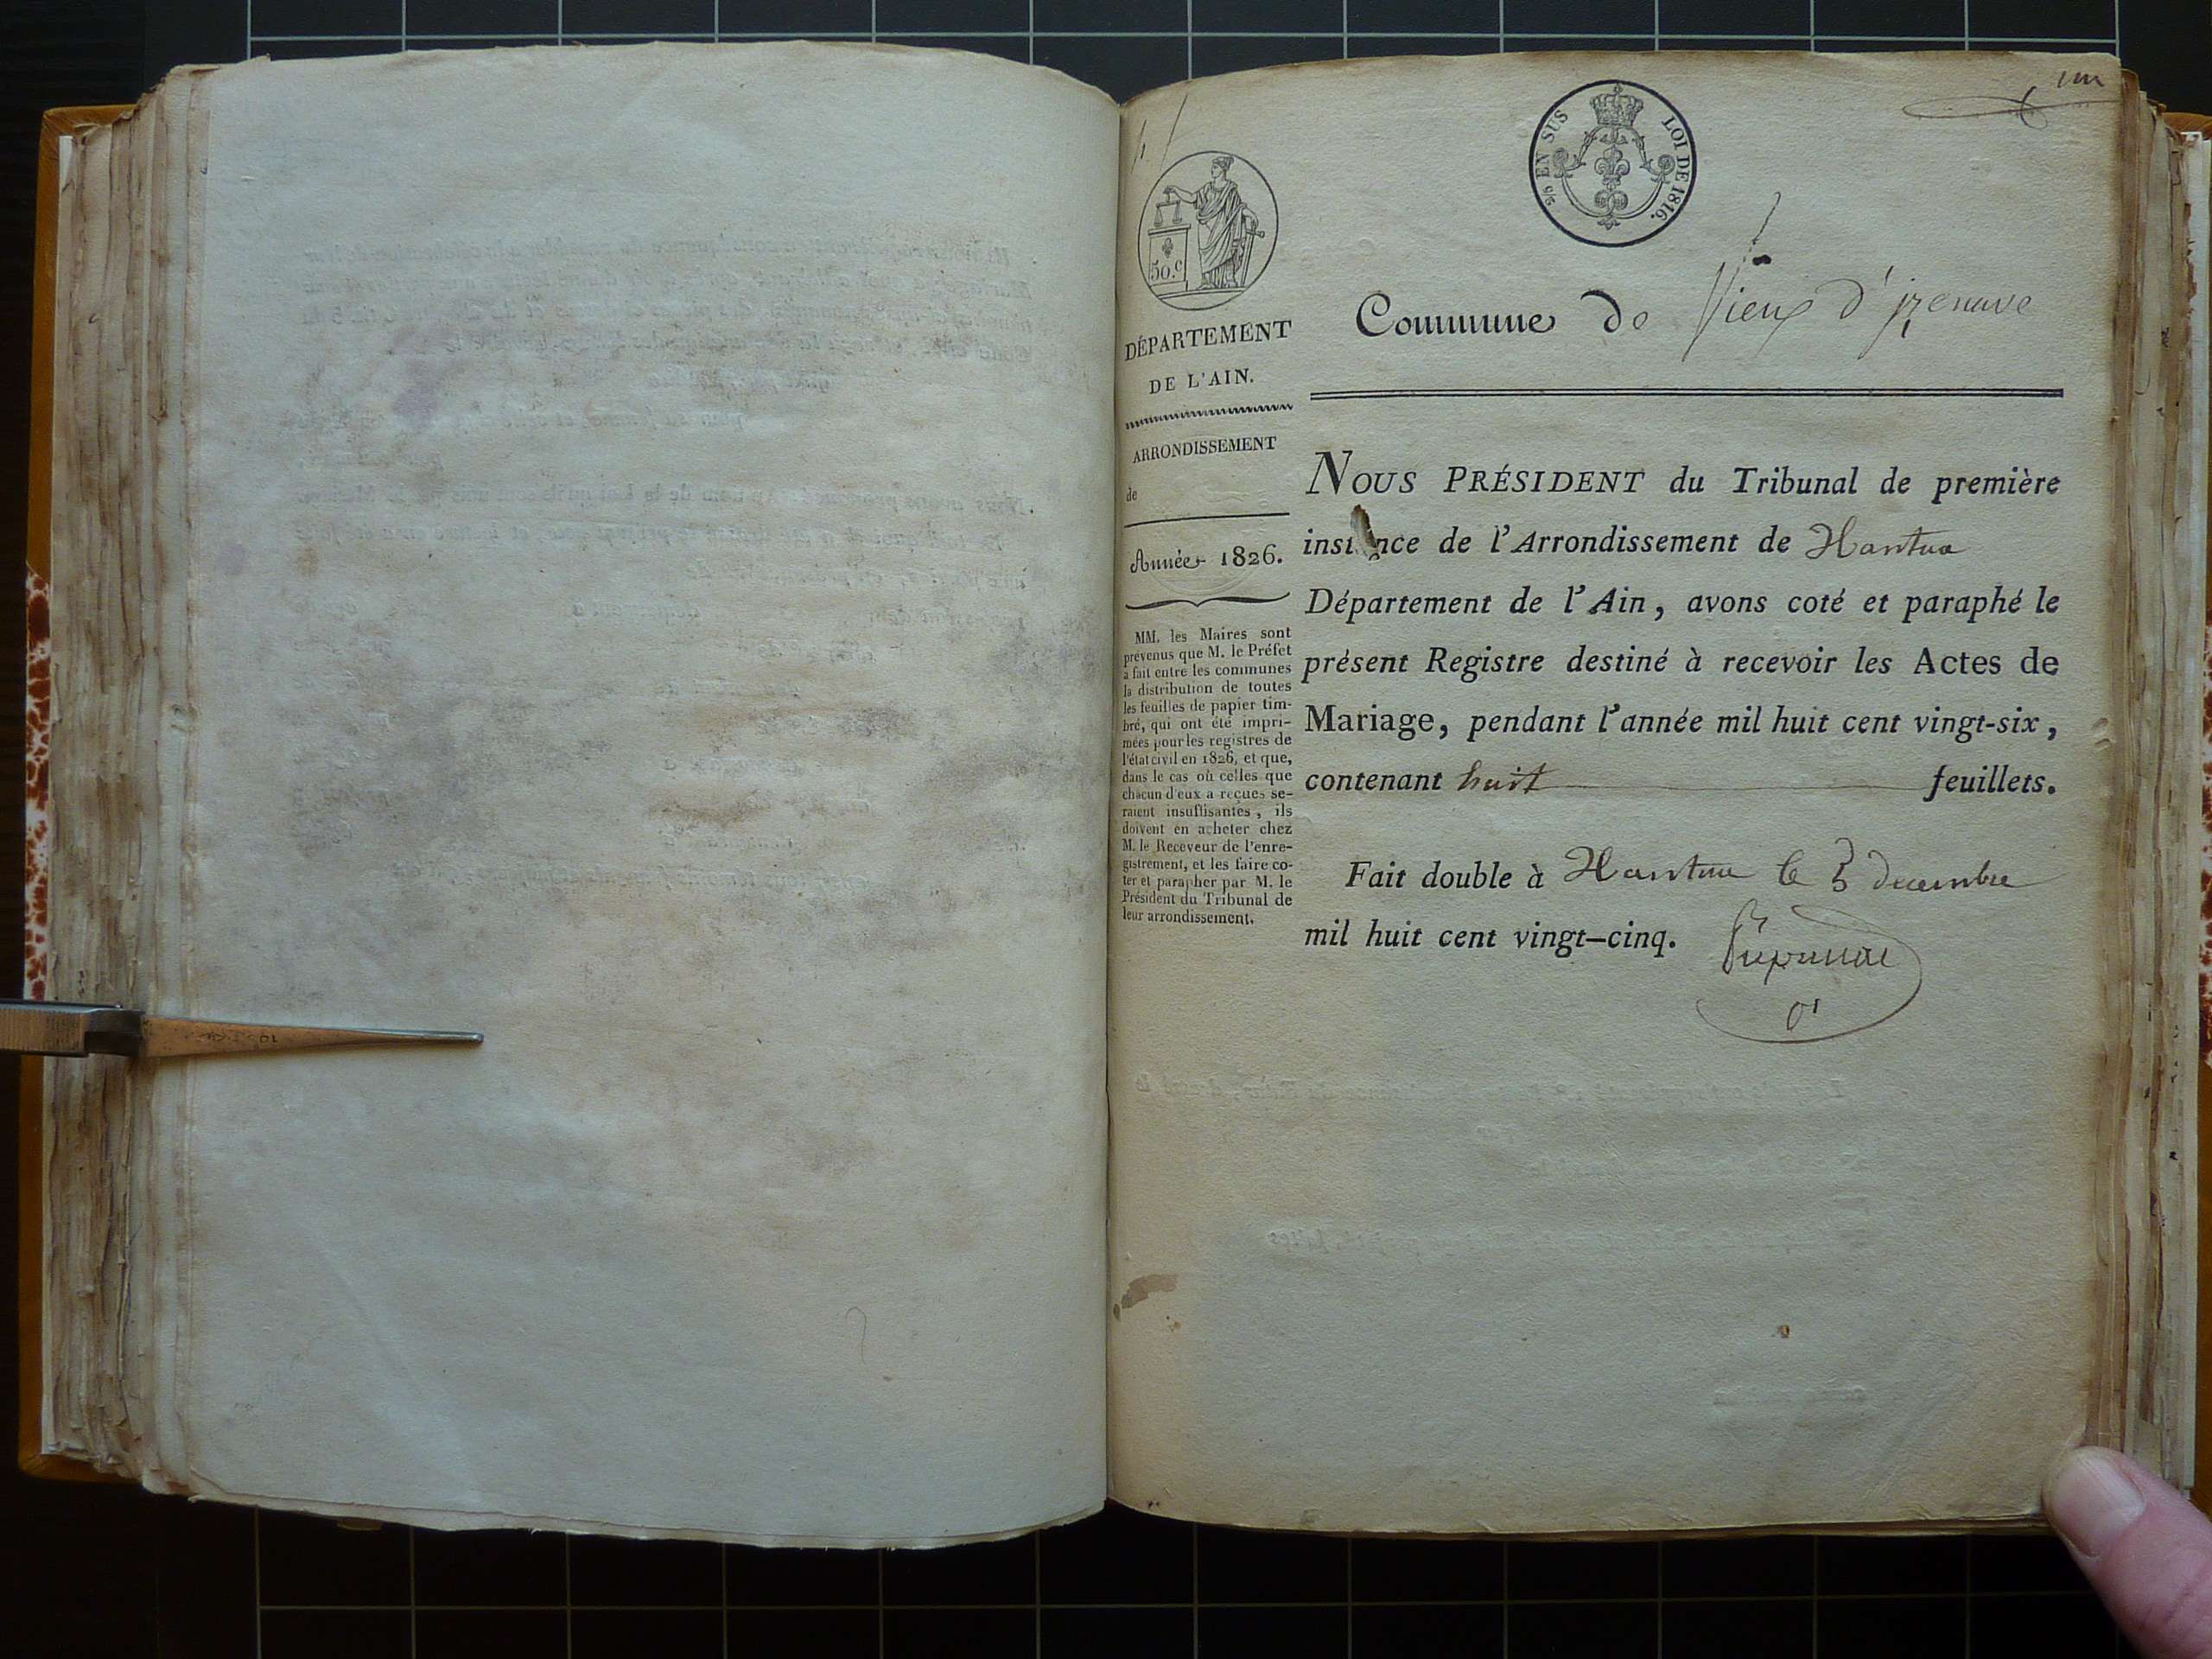 un
5/6 EN SUS LOI DE 1816.
50.c
DÉPARTEMENT
DE L'AIN.
ARRONDISSEMENT
de
Année 1826.
MM. les Maires sont
prévenus que M. le Préfet
a fait entre les communes
la distribution de toutes
les feuilles de papier tim-
bré, qui ont été impri-
mées pour les registres de
l'état civil en 1826, et que,
dans le cas où celles que
chacun d'eux a reçues se-
raient insuffisantes, ils
doivent en acheter chez
M. le Receveur de l'enre-
gistrement, et les faire co-
ter et parapher par M. le
Président du Tribunal de
leur arrondissement.
Commune de Vieux d'izenave
NOUS PRÉSIDENT du Tribunal de première
instance de l'Arrondissement de Nantua
Département de l'Ain, avons coté et paraphé le
présent Registre destiné à recevoir les Actes de
Mariage, pendant l'année mil huit cent vingt-six,
contenant huit feuillets.
Fait double à Nantua le 5 decembre
mil huit cent vingt-cinq.